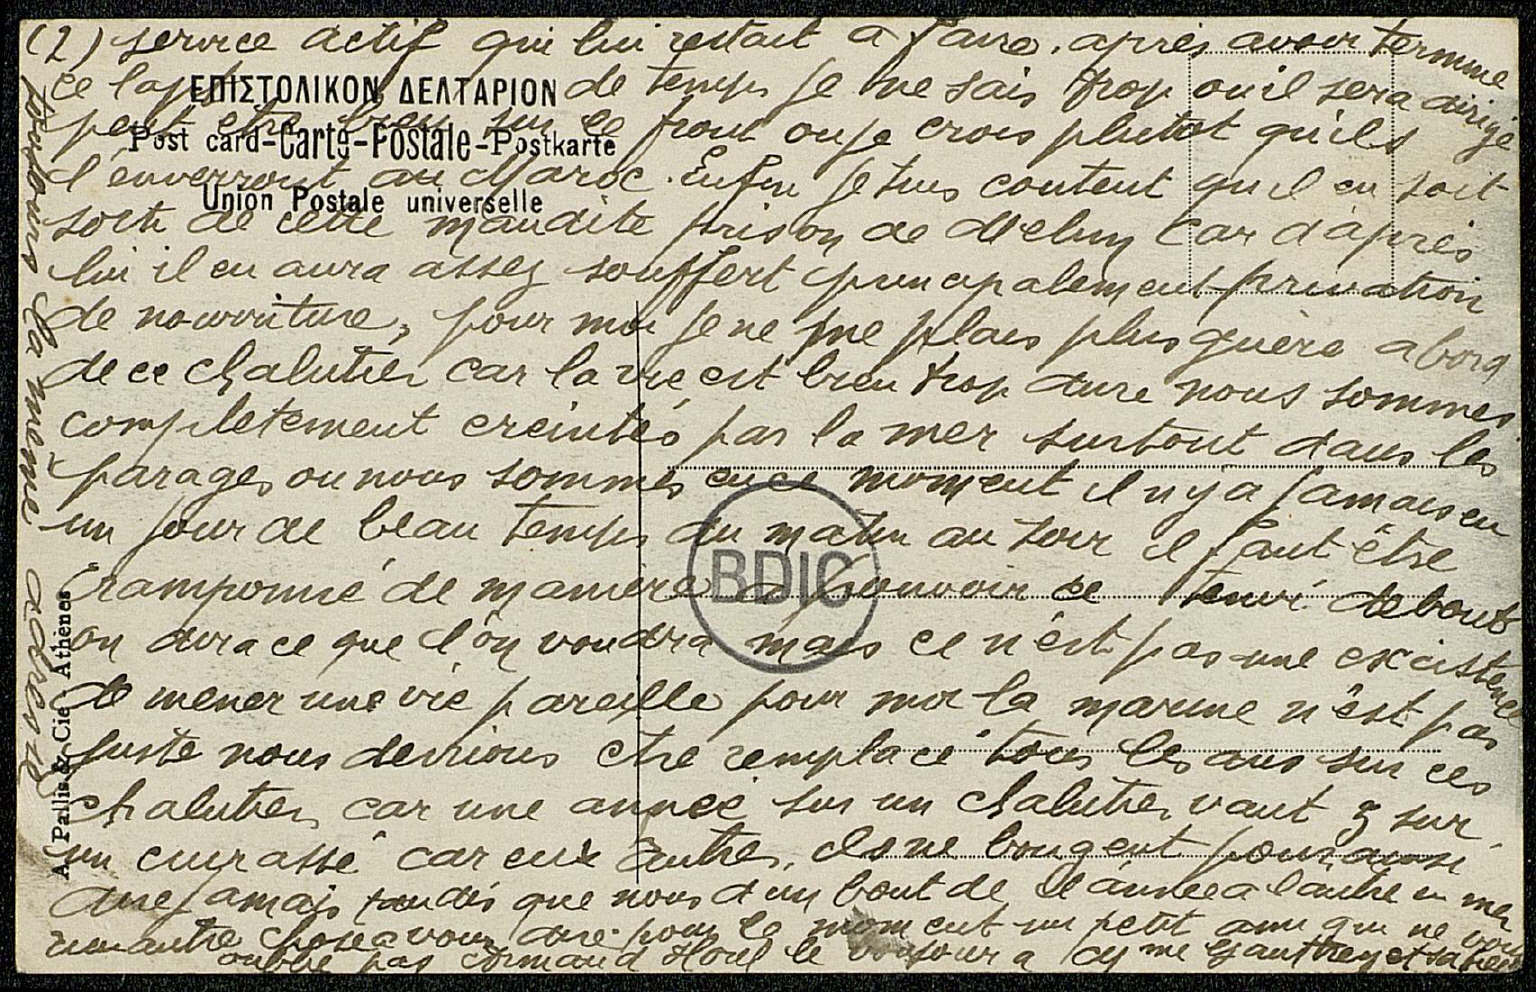 (2) service actif qui lui restait a faire. après avoir terminé
ce laps de temps je ne sais trop ou il sera dirigé
peut être bien sur le front ou je crois plutot qu'ils
l'enverront au Maroc. Enfin je suis content qu'il en soit
sorti de cette maudite prison de Melun car d'après
lui il en aura assez souffert principalement privation
de nourriture, pour moi je ne me plais plus guère a bord
de ce chalutier car la vie est bien trop dure nous sommes
complètement creintés par la mer surtout dans les
parages ou nous sommes en ce moment il n'y a jamais eu
un jour de beau temps du matin au soir il faut être
cramponné de manière a pouvoir ce tenir debout
on dira ce que l'on voudra mais ce n'est pas une existence
de mener une vie pareille pour moi la marine n'est pas
juste nous devrions etre remplacé tous les ans sur ces
chalutiers car une année sur un chalutier vaut 3 sur
un cuirassé car eux autres, ils ne bougent pour ainsi
dire jamais tandis que nous d'un bout de l'année a l'autre en mer
autre chose a vous dire pour le moment un petit ami qui ne vous
oublie pas le bonjour a
toujours la meme adresse
ΕΠΙΣΤΟΛΙΚΟΝ ΔΕΛΤΑΡΙΟΝ
Post card-Carte-Postale-Postkarte
Union Postale universelle
A. Pallis & Cie - Athènes
BDIC